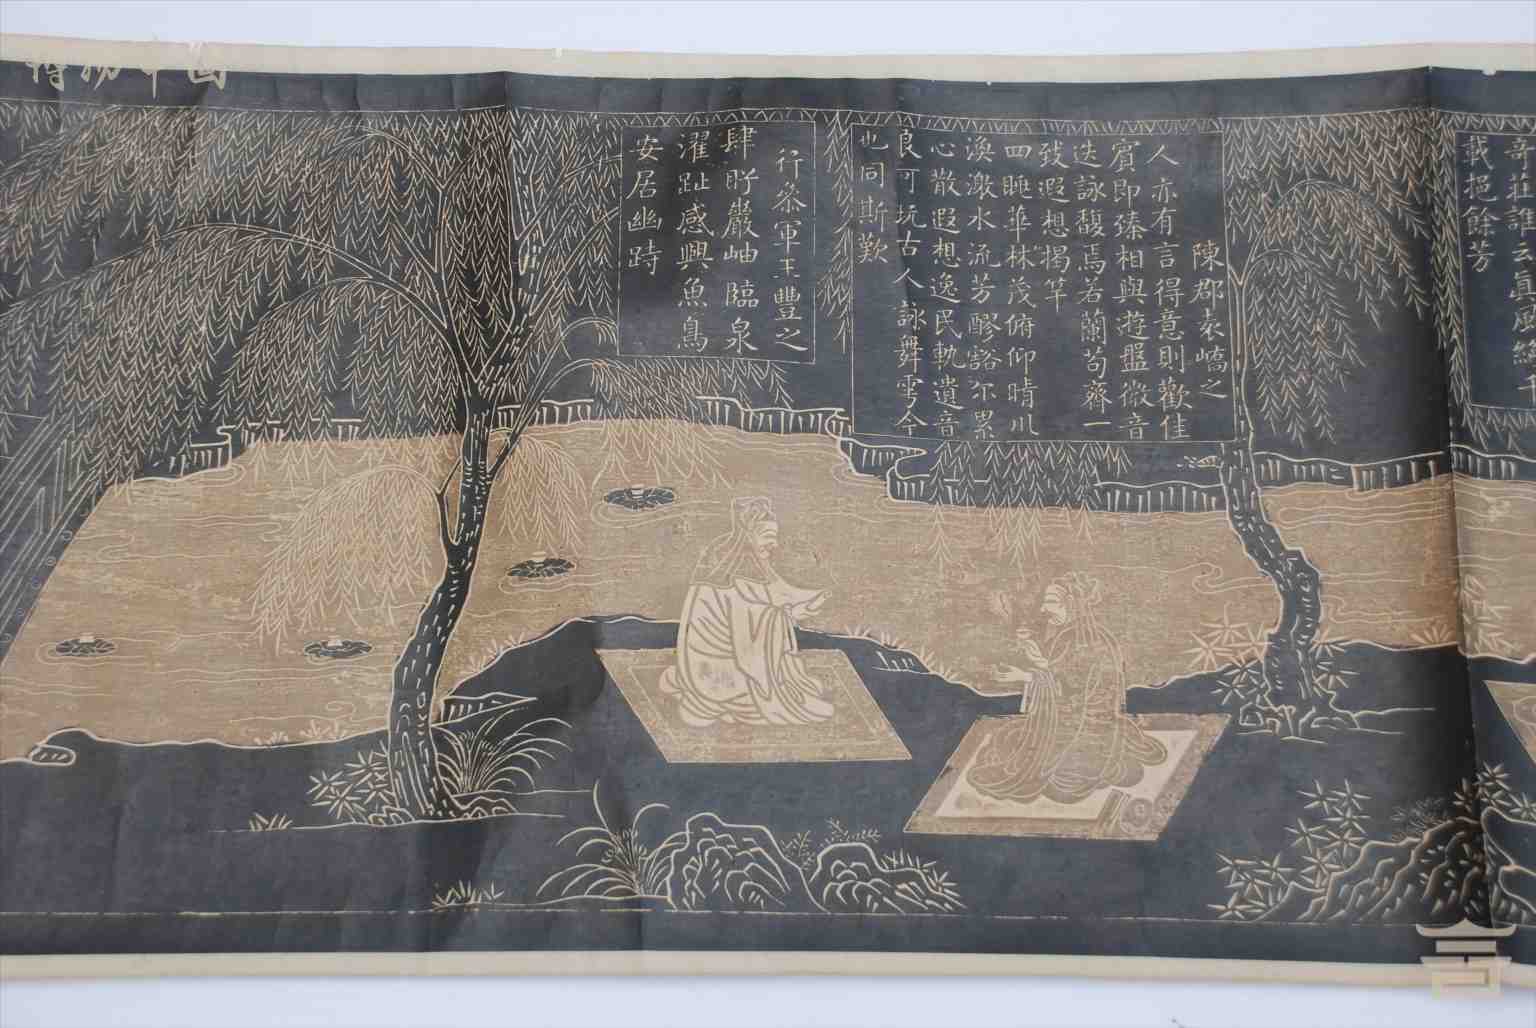 奇莊誰云真風絕千
載挹餘芳
陳郡袁嶠之
人亦有言得意則歡佳
賓即臻相與遊盤微音
迭詠馥焉若蘭苟齊一
致遐想揭竿
四眺華林茂俯仰晴川
渙激水流芳醪豁尔累
心散遐想逸民軌遺音
良可玩古人詠舞雩今
也同斯歎
行叅軍王豐之
肆眄巖岫臨泉
濯趾感興魚鳥
安居幽跱
博物中國